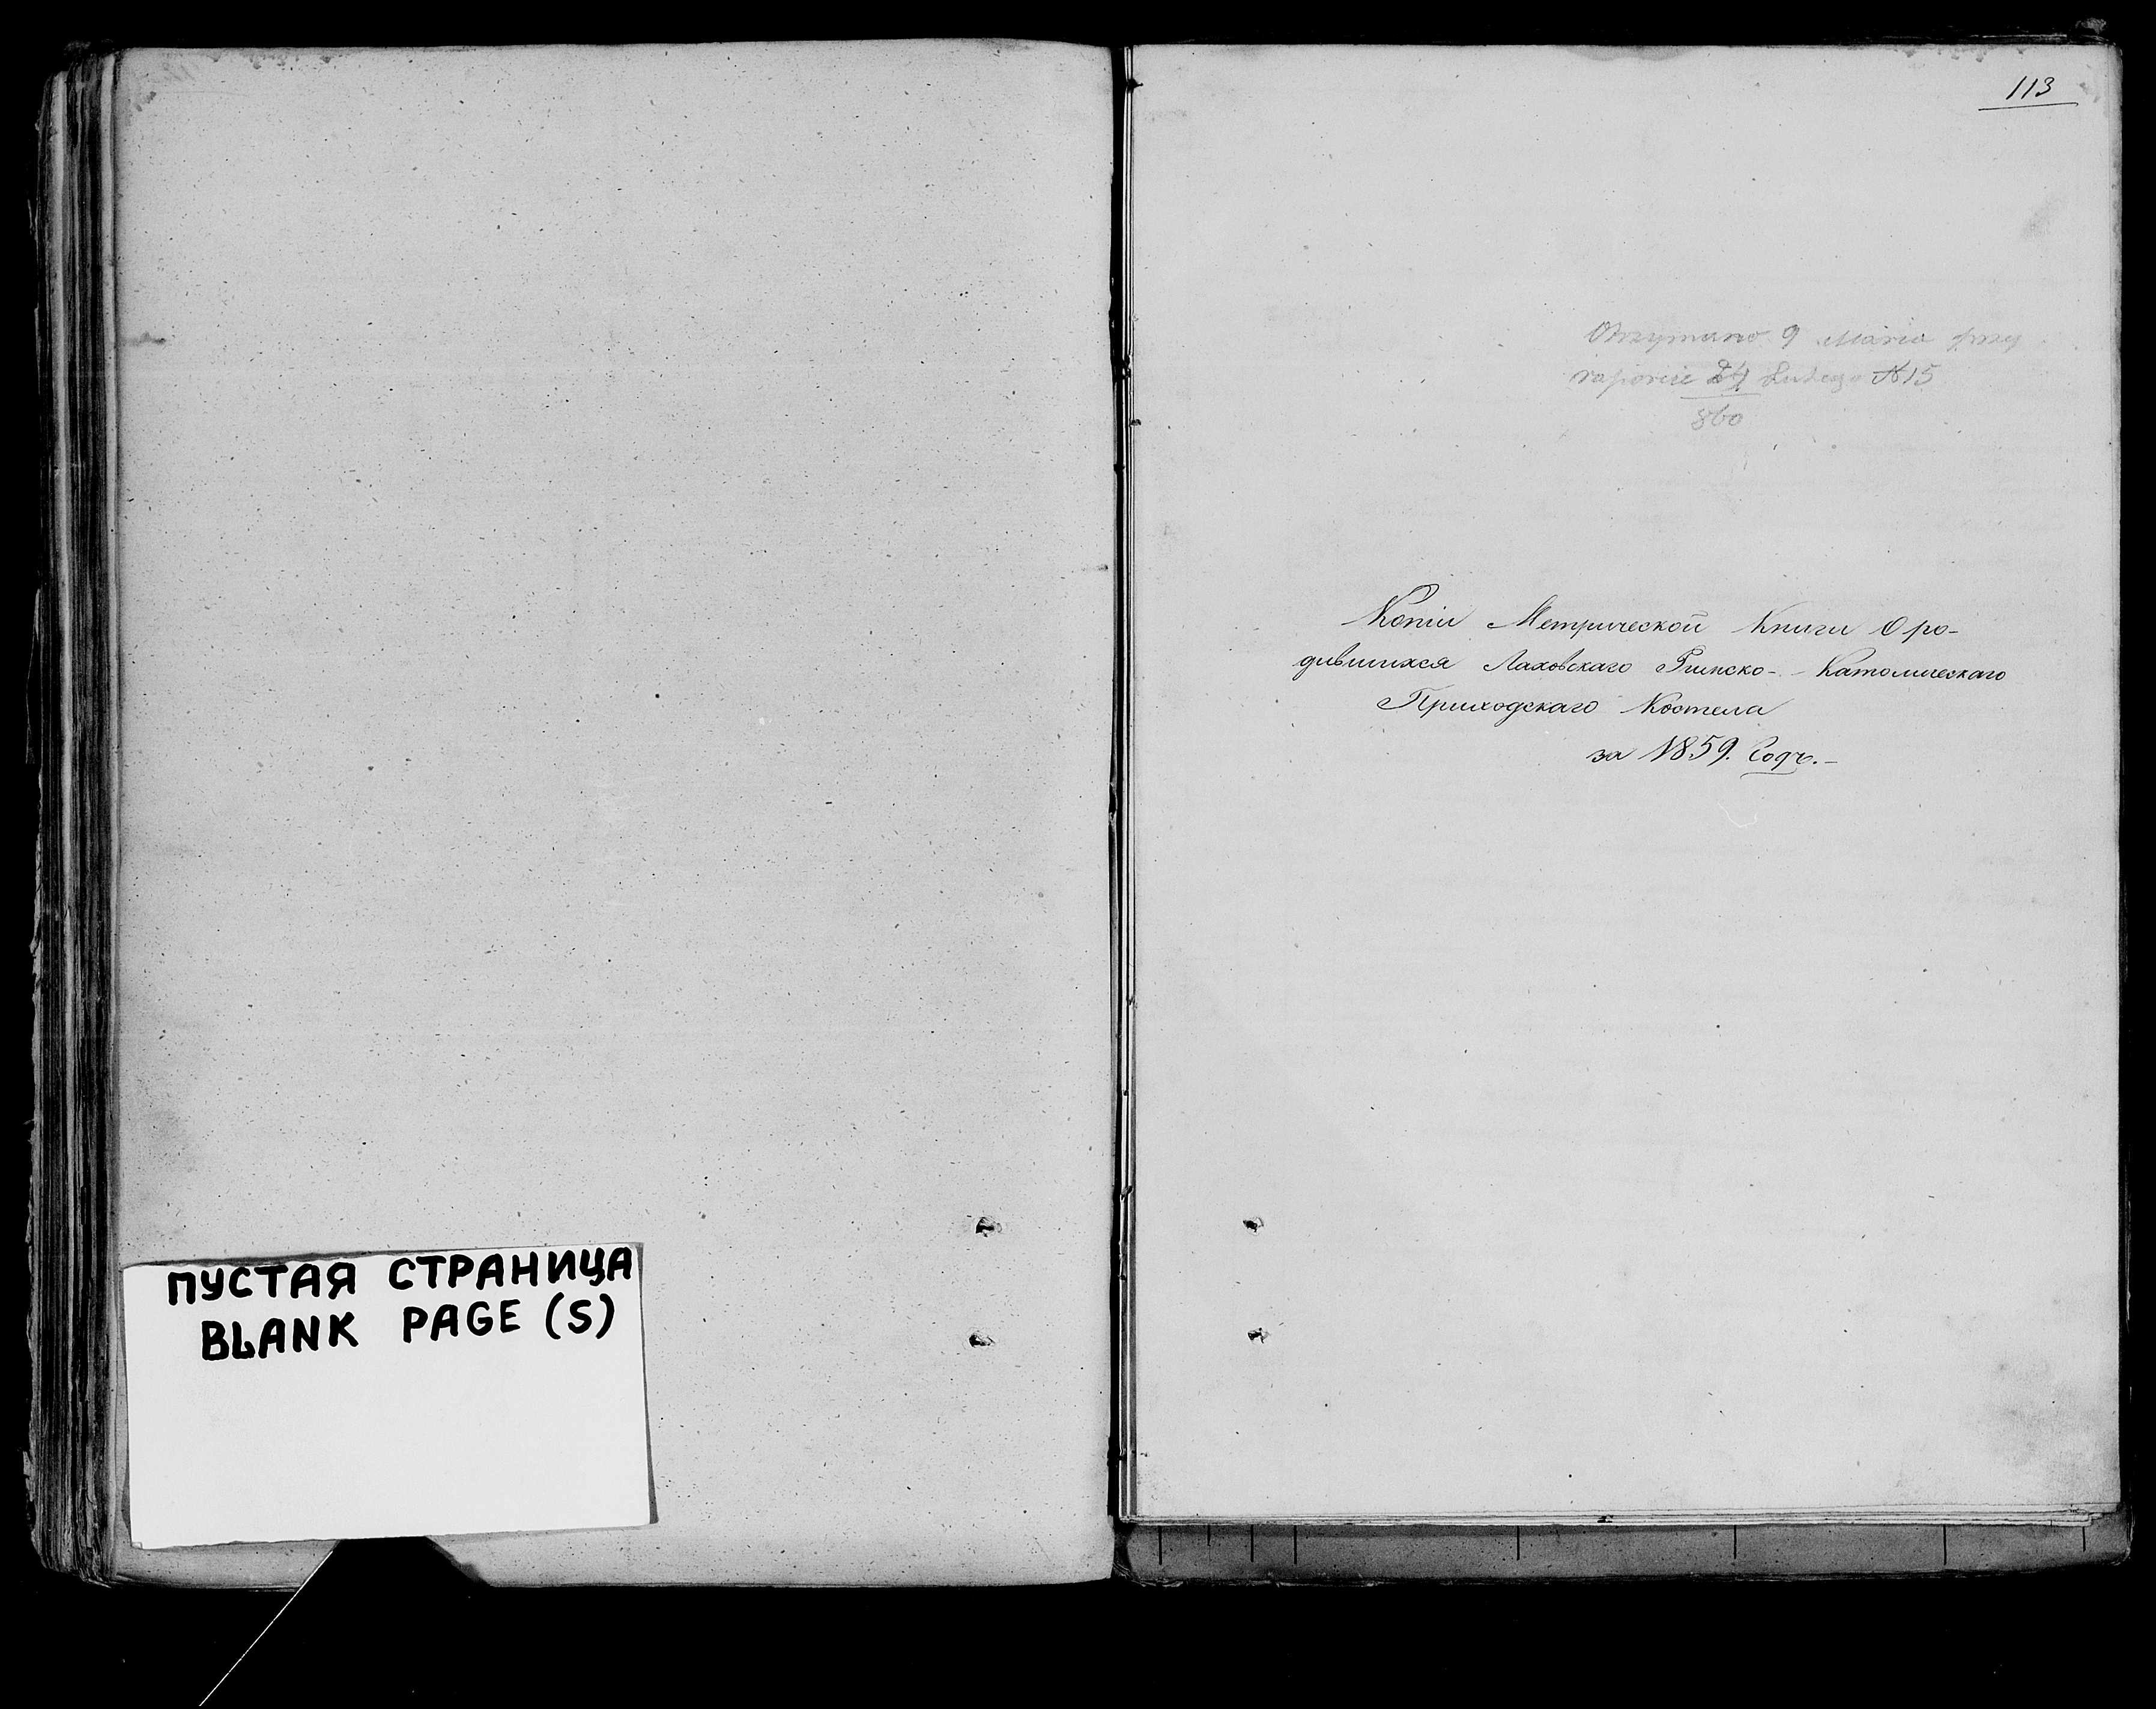 ПУСТАЯ СТРАНИЦА
BLANK PAGE (S)
113
Otrzymano 9 Marca przy
raporcie 24 Lutego №15
860
Копіи Метрической Книги О ро-
дившихся Лаховскаго Римско-Католическаго
Приходскаго Костела
за 1859. Годъ.-